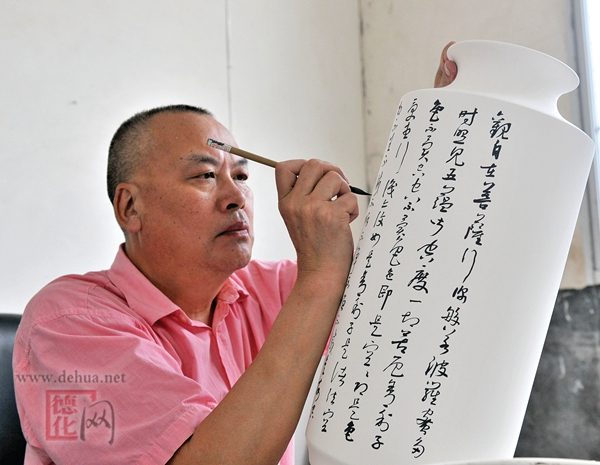 觀自在菩薩行深般若波羅蜜多
時照見五蘊皆空度一切苦厄舍利子
色不異空空不異色色即是空空即是色
受想行識亦復如是舍利子是諸法空
www.dehua.net
德化网